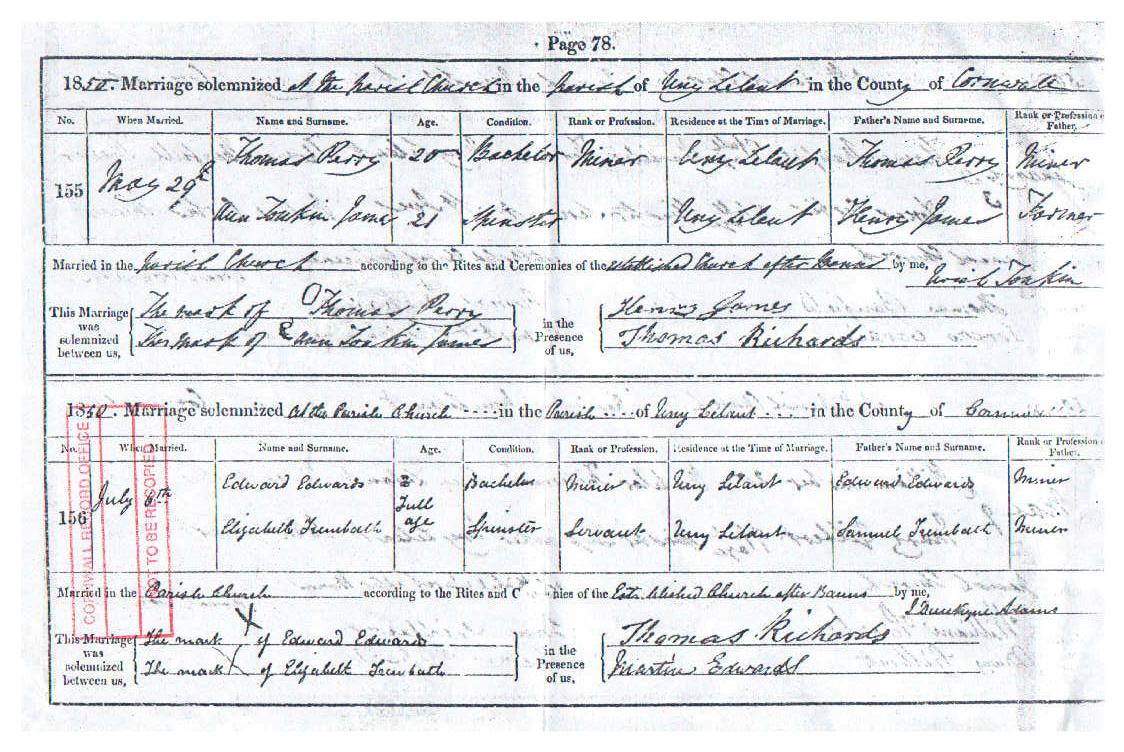 Page 78.
1850. Marriage solemnized at the parish Church in the parish of Uny Lelant in the County of Cornwall
No. When Married. Name and Surname. Age. Condition. Rank or Profession. Residence at the Time of Marriage. Father's Name and Surname. Rank or Profession of Father.
Thomas Perry 20 Bachelor Miner Uny Lelant Thomas Perry Miner
155 May 29th
Ann Tonkin James 21 Spinster Uny Lelant Henry James Farmer
Married in the parish Church according to the Rites and Ceremonies of the established Church after Banns by me, Uriah Tonkin
This Marriage was solemnized between us, The mark of Thomas Perry in the Presence of us, Henry James
The mark of Ann Tonkin James Thomas Richards
1850. Marriage solemnized at the Parish Church in the Parish of Uny Lelant in the County of Cornwall
No. When Married. Name and Surname. Age. Condition. Rank or Profession. Residence at the Time of Marriage. Father's Name and Surname. Rank or Profession of Father.
Edward Edwards Full age Bachelor Miner Uny Lelant Edward Edwards Miner
156 July 6th
Elizabeth Trembath Spinster Servant Uny Lelant Samuel Trembath Miner
Married in the Parish Church according to the Rites and C nies of the Established Church after Banns by me, Adams
This Marriage was solemnized between us, The mark X of Edward Edwards in the Presence of us, Thomas Richards
The mark X of Elizabeth Trembath Martin Edwards
CORNWALL RECORD OFFICE
NOT TO BE RECOPIED